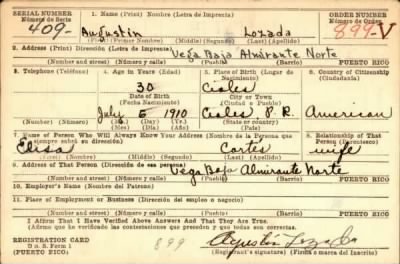 SERIAL NUMBER 1. NAME (Print) Nombre (Letra de Imprenta) ORDER NUMBER
Número de Serie Número de Orden
409- Augustin Lozada 899-V
(First) Primer Nombre (Middle) (Segundo) (Last) (Apellido)
2. Address (Print) Dirección (Letra de Imprenta)
Vega Baja Almirante Norte
(Number and street) (Número y calle) (Pueblo) (Barrio) PUERTO RICO
3. Telephone (Teléfono) 4. Age in Years (Edad) 5. Place of Birth (Lugar de Nacimiento) 6. Country of Citizenship (Ciudadanía)
30 Ciales
Date of Birth City or Town
(Fecha Nacimiento) (Ciudad o Pueblo)
July 5 1910 Ciales P.R. American
(Mo.) (Day) (Yr.) State or country)
(Mes) (Día) (Año) (Estado o país)
7. Name of Person Who Will Always Know Your Address (Nombre de la Persona que siempre sabrá su dirección) 8. Relationship of That Person (Parentesco)
Elisa Cortés wife
(First) (Middle) (Segundo) (Last) (Apellido)
9. Address of That Person (Dirección de esa persona)
Vega Baja Almirante Norte
(Number and street) (Número y calle) (Pueblo) (Barrio) PUERTO RICO
10. Employer's Name (Nombre del Patrono)
11. Place of Employment or Business (Dirección del empleo o negocio)
(Number and street) (Número y calle) (Pueblo) (Barrio) PUERTO RICO
I Affirm That I Have Verified Above Answers And That They Are True.
(Afirmo que he verificado las contestaciones que preceden y que todas son correctas.
REGISTRATION CARD 899 Agustin Lozada
D s s. Form 1 (Registrant's signature) (Firma o marca del Inscrito)
PUERTO RICO